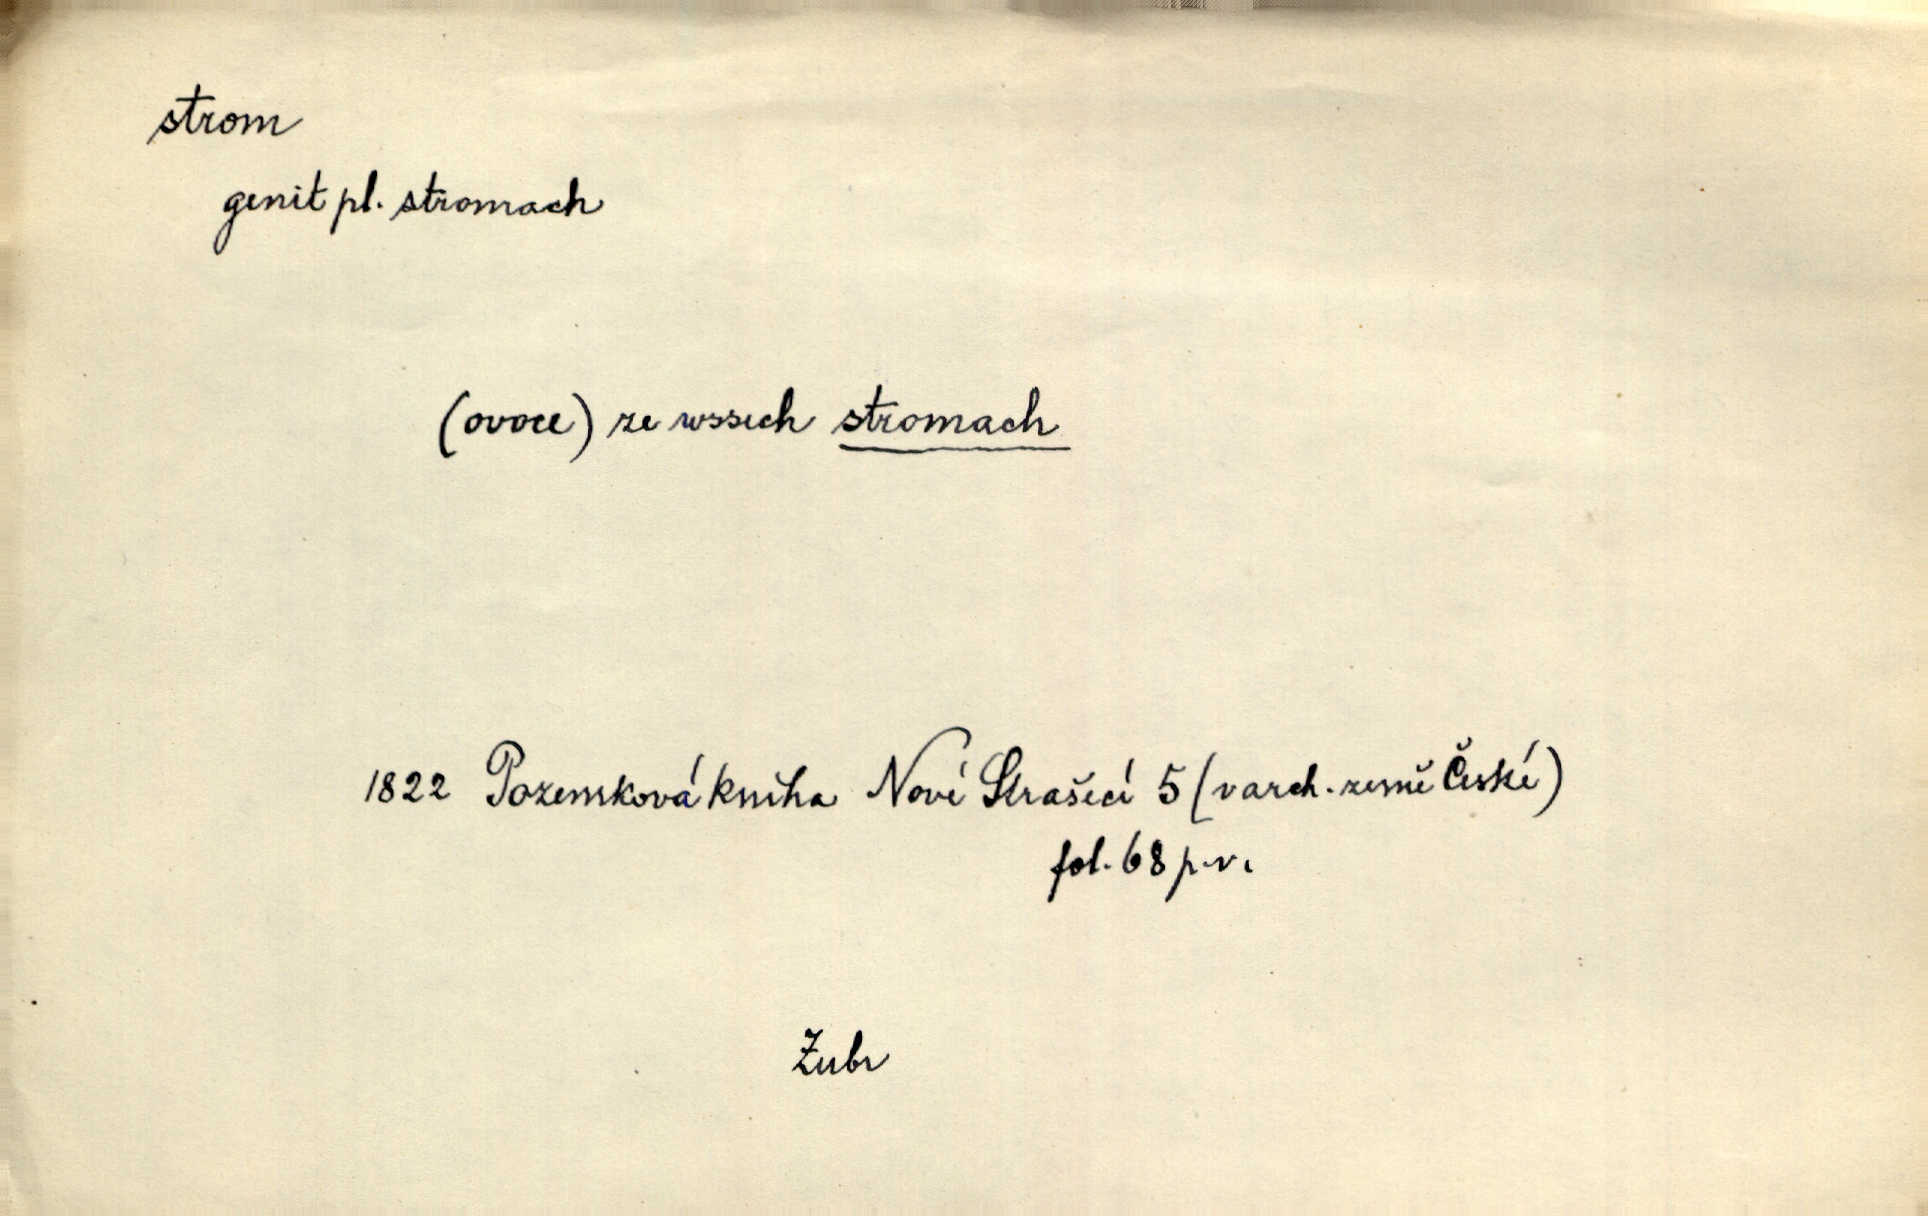 strom
genit pl. stromach
(ovoce) ze wssech stromach
1822 Pozemková kniha Nové Strašecí 5 (v arch. země České)
fol. 68 p. v.
Zubr